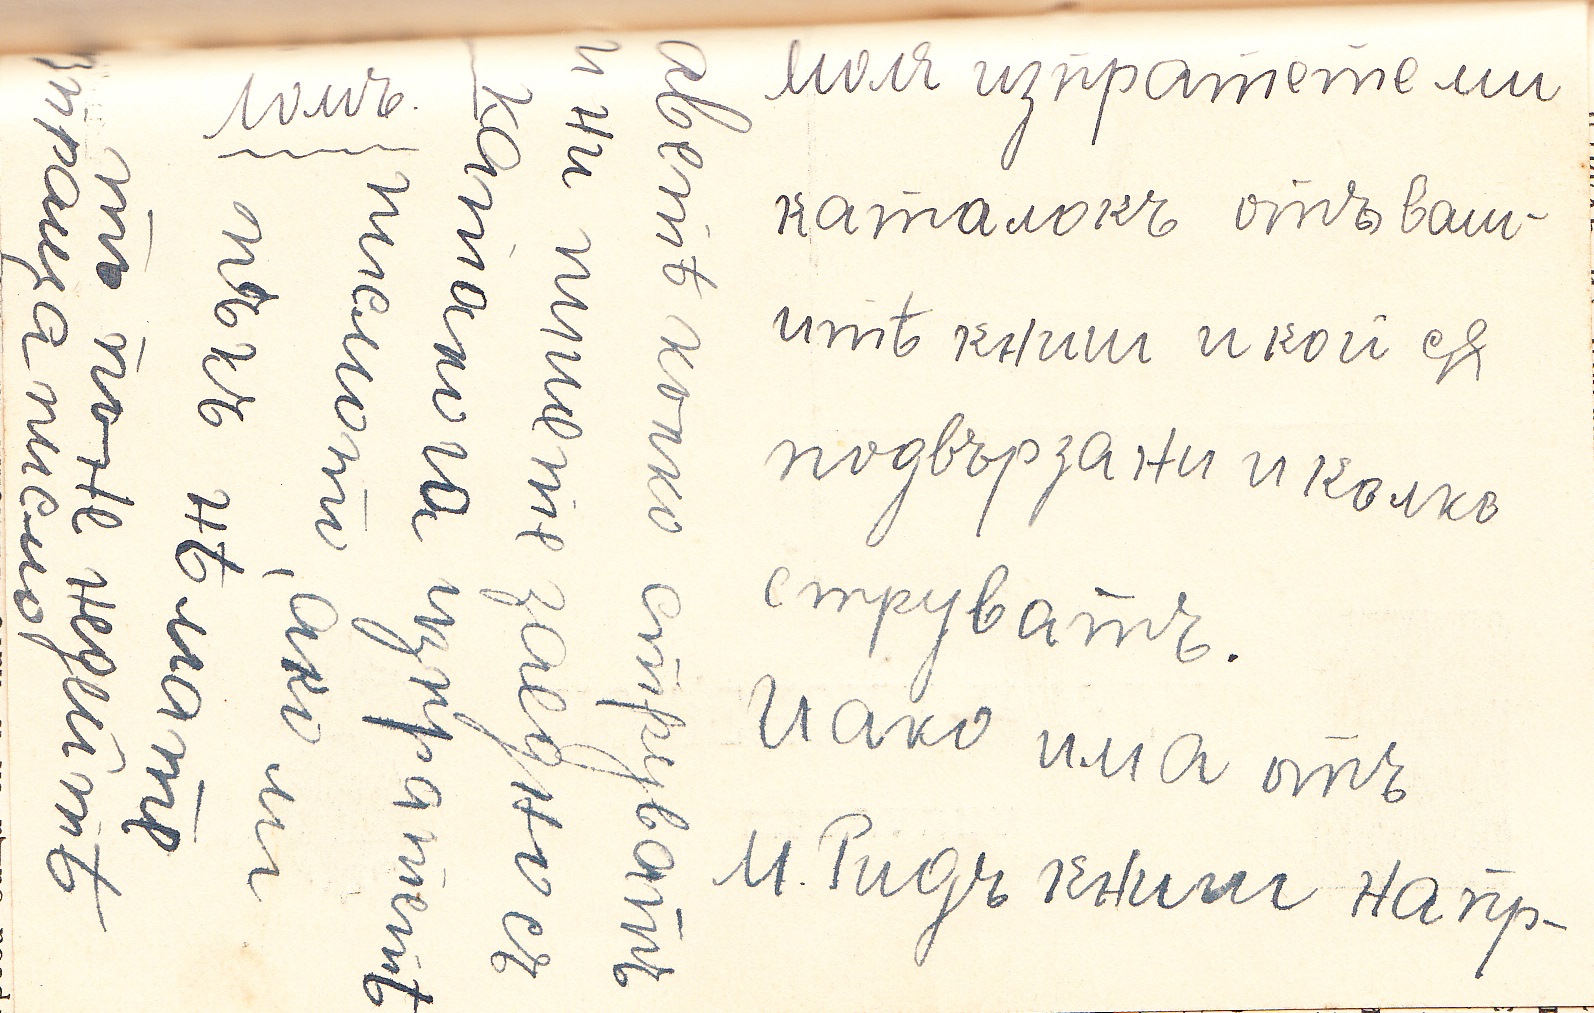 моля изпратете ми
каталокъ отъ ваш-
итѣ книги и кой сѫ
подвързани и колко
струватъ.
И ако има отъ
М. Ридъ книги напр-
аветѣ колко струватъ
и ни пишете заедно съ
каталога изпратетѣ
писмото, ако ли
пъкъ нѣмате
то поне недейтѣ
изпраща писмо
Ломъ.